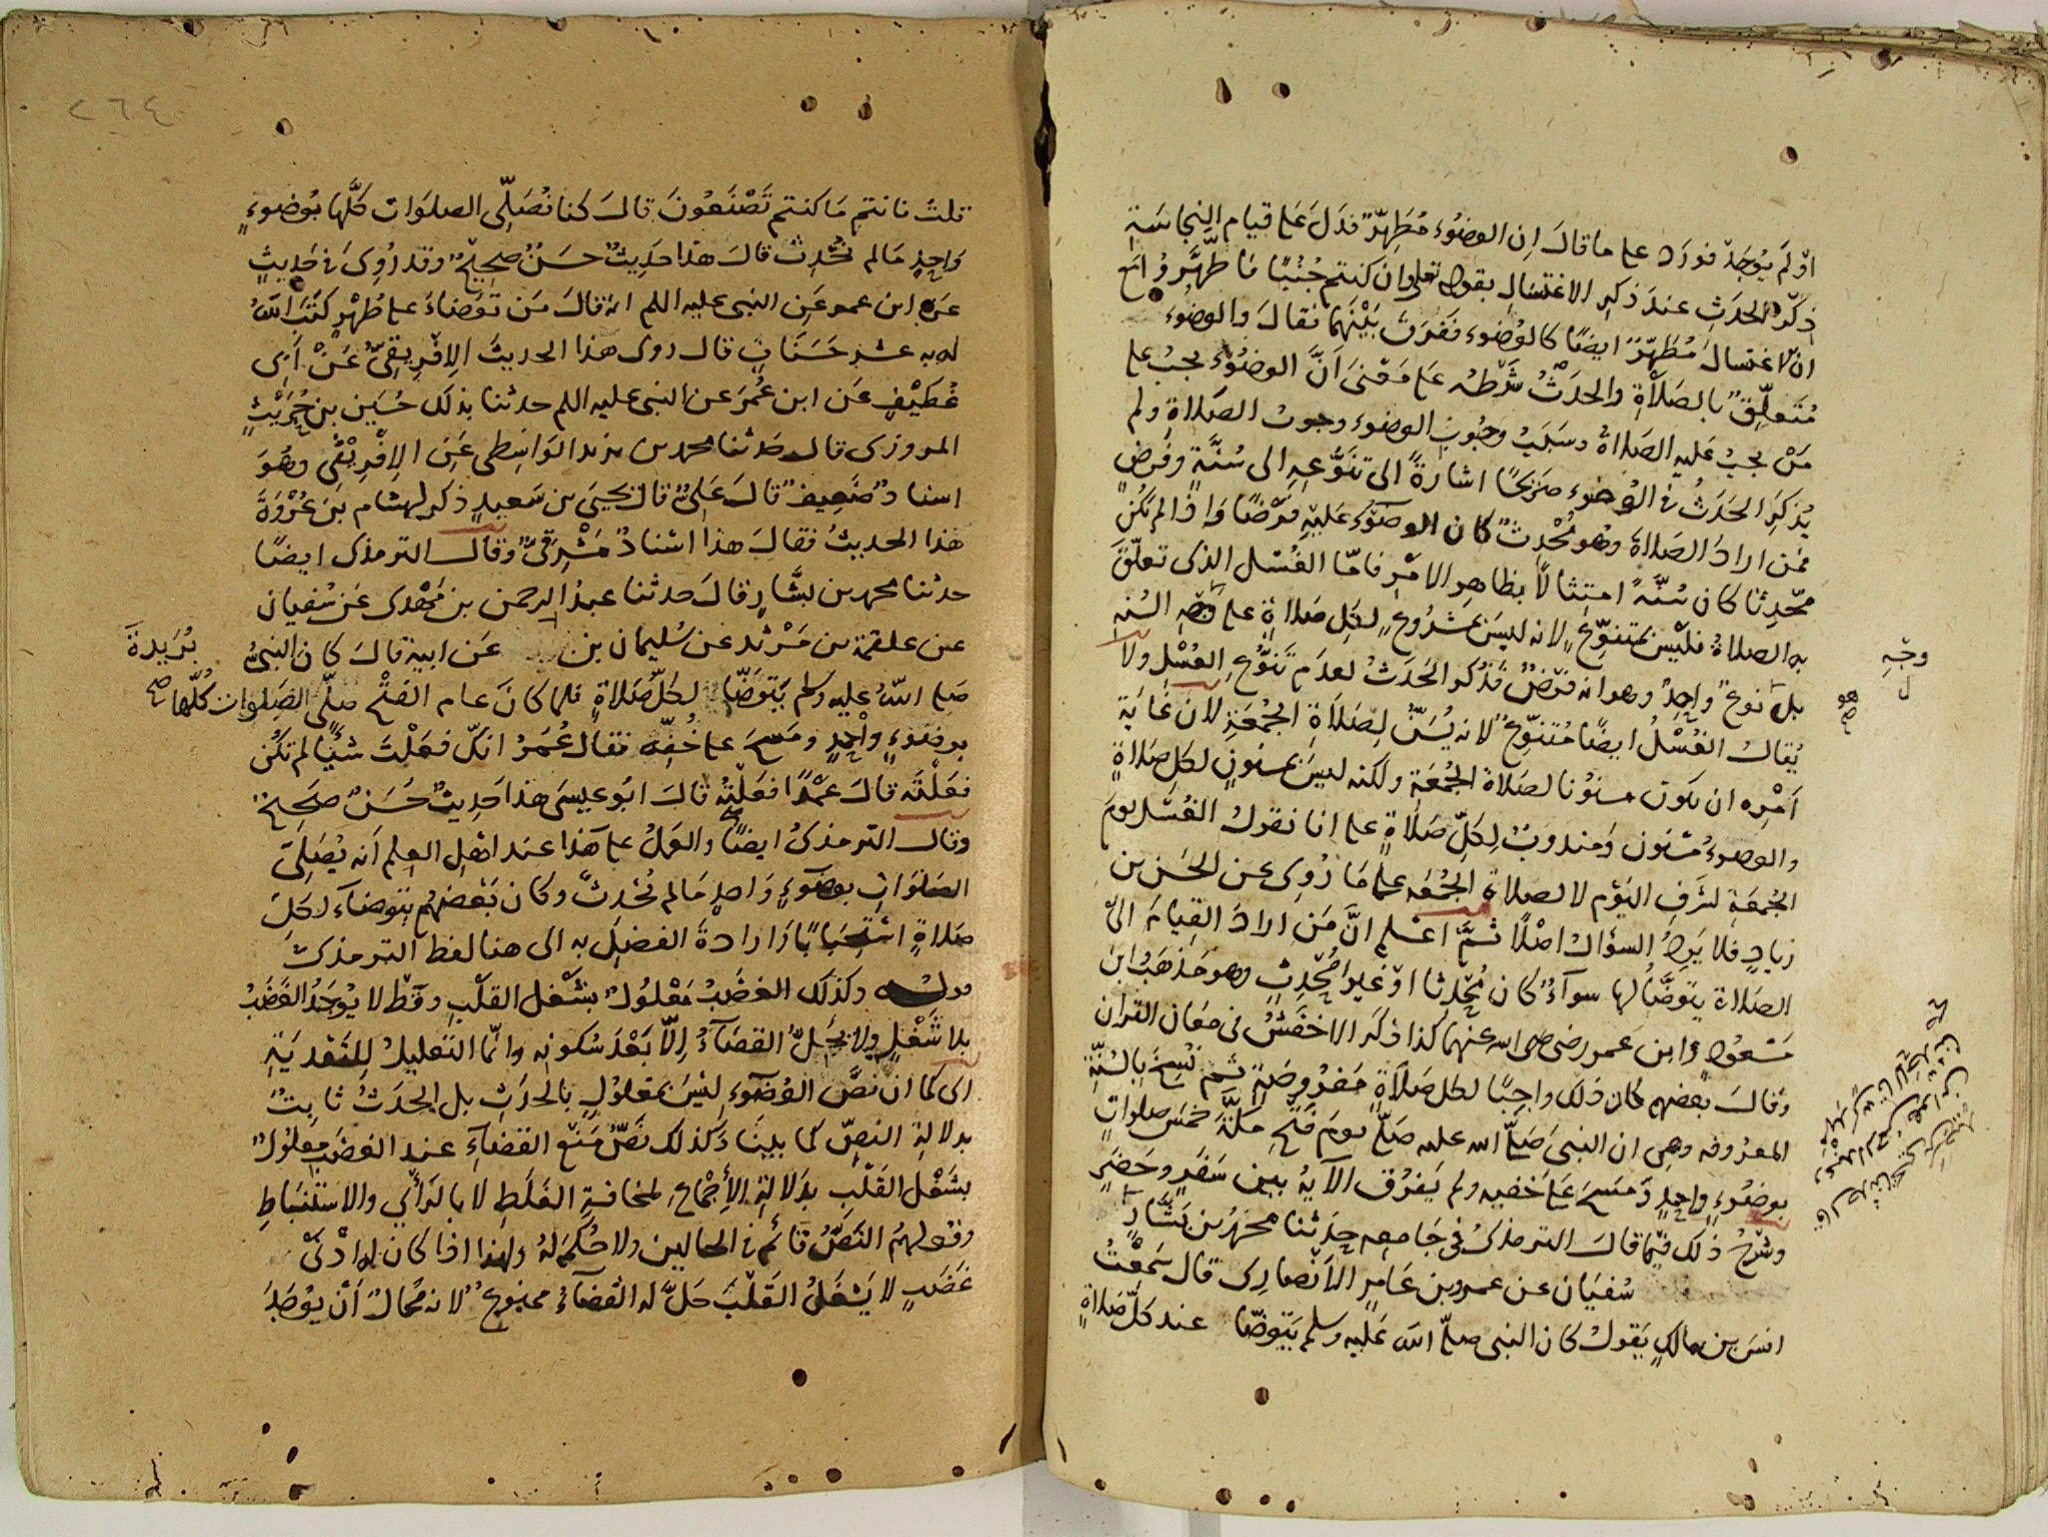 او لم يوجد فورد على ما قال ان الوضوء مطهر فدل على قيام النجاسة
ذكر الحدث عند ذكر الاغتسال بقوله تعلى وان كنتم جنبا فاطهروا مع
ان الاغتسال مطهر ايضا كالوضوء ففرق بينهما فقال والوضوء
متعلق بالصلاة والحدث شرطه على معنى ان الوضوء يجب على
من يجب عليه الصلاة وسبب وجوب الوضوء وجوب الصلاة ولم
يذكر الحدث في الوضوء صريحا اشارة الى تنوعه الى سنة وفرض
فمن اراد الصلاة وهو محدث كان الوضوء عليه فرضا واذا لم يكن
محدثا كان سنة امتثالا بظاهر الامر فاما الغسل الذى تعلق
به الصلاة فليس بمتنوع لانه ليس بمشروع لكل صلاة على السنة
بل نوع واحد وهو انه فرض فذكر الحدث لعدم تنوع الغسل ولا
يقال الغسل ايضا متنوع لانه يسن لصلاة الجمعة لان غاية
امره ان يكون مسنونا لصلاة الجمعة ولكنه ليس بمسنون لكل صلاة
والوضوء مسنون ومندوب لكل صلاة على انا نقول الغسل يوم
الجمعة لشرف اليوم لا لصلاة الجمعة على ما روى عن الحسن بن
زياد فلا يرد السؤال اصلا ثم اعلم ان من اراد القيام الى
الصلاة يتوضأ لها سواء كان محدثا او غير محدث وهو مذهب ابن
مسعود وابن عمر رضى الله عنهما كذا ذكر الاخفش في معان القران
وقال بعضهم كان ذلك واجبا لكل صلاة مفروضة ثم نسخ بالسنة
المعروفه وهى ان النبى صلى الله عليه صلى يوم فتح مكة خمس صلوات
بوضوء واحد ومسح على خفيه ولم يفرق الآية بين سفر وحضر
وشرح ذلك فيما قال الترمذى في جامعه حدثنا محمد بن بشار
سفيان عن عمرو بن عامر الانصارى قال سمعت
انس بن مالك يقول كان النبى صلى الله عليه وسلم يتوضا عند كل صلاة
وجه
٢٦٤
قلت فانتم ما كنتم تصنعون قال كنا نصلى الصلوات كلها بوضوء
واحد ما لم نحدث قال هذا حديث حسن صحيح وقد روى في حديث
عن ابن عمر عن النبى عليه اللم انه قال من توضاء على طهر كتب الله
له به عشر حسنات قال روى هذا الحديث الافريقى عن ابى
غطيف عن ابن عمر عن النبى عليه اللم حدثنا بذلك حسين بن حريث
المروزى قال حدثنا محمد بن يزيد الواسطى عن الافريقى وهو
اسناد ضعيف قال على قال يحيى بن سعيد ذكر لهشام بن عروة
هذا الحديث فقال هذا اسناد مشرقى وقال الترمذى ايضا
حدثنا محمد بن بشار قال حدثنا عبد الرحمن بن مهدى عن سفيان
عن علقمة بن مرثد عن سليمان بن بريدة عن ابيه قال كان النبى
صلى الله عليه وسلم يتوضا لكل صلاة فلما كان عام الفتح صلى الصلوات كلها
بوضوء واحد ومسح على خفيه فقال عمر انك فعلت شيئا لم تكن
فعلته قال عمدا فعلته قال ابو عيسى هذا حديث حسن صحيح
وقال الترمذى ايضا والعمل على هذا عند اهل العلم انه يصلى
الصلوات بوضوء واحد ما لم يحدث وكان بعضهم يتوضاء لكل
صلاة استحبابا وارادة الفضل به الى هنا لفظ الترمذى
قوله وكذلك الغضب معلول بشغل القلب وقط لا يوجد الغضب
بلا شغل ولا يحل القضاء الا بعد سكونه وانما التعليل للتعدية
اى كما ان نص الوضوء ليس بمعلول بالحدث بل الحدث ثابت
بدلالة النص كما بينا وكذلك نص منع القضاء عند الغضب معلول
بشغل القلب بدلالة الاجماع لمخافة الغلط لا بالرأى والاستنباط
وقولهم النص قائم في الحالين ولا حكم له ولهذا اذا كان له ادنى
غضب لا يشغل القلب حل له القضاء ممنوع لانه محال ان يوجد